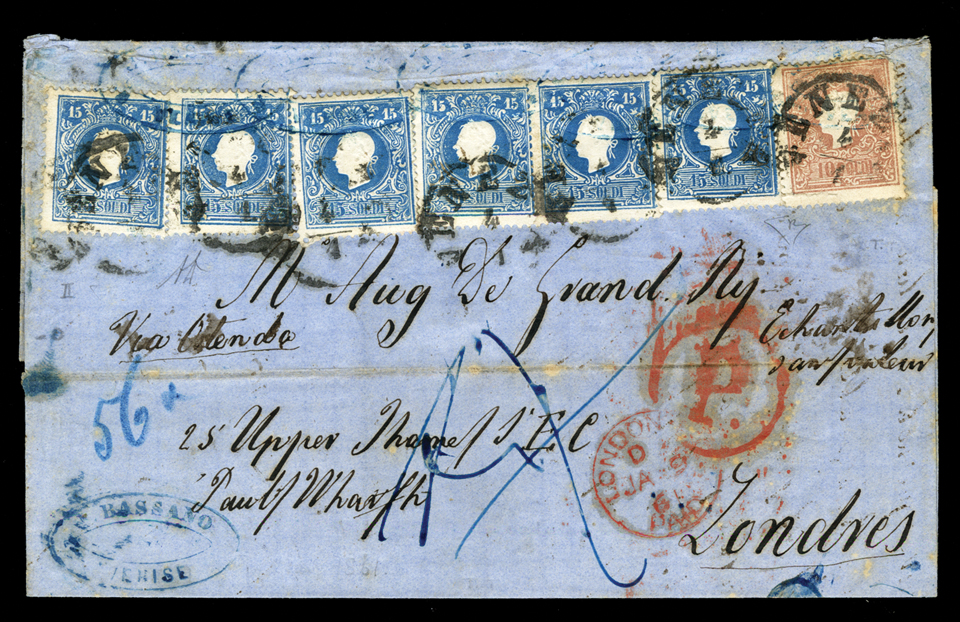 15 15 15 15 15 15 15 15 15 15 15 15
15 SOLDI 15 SOLDI 15 SOLDI 15 SOLDI 15 SOLDI 15 SOLDI 10 SOLDI
II
M Aug De Grand Ry
Via Ostende
Echantillon
sans valeur
56
P.
25 Upper Thames St E C
Pauls Wharf
LONDON
D
JA
PAID
BASSANO
VENISE
Londres